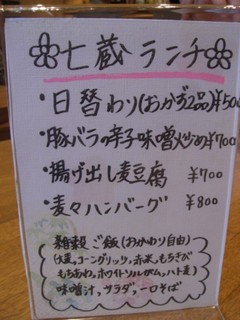 七蔵ランチ
・日替わり(おかず2品)¥500
・豚バラの辛子味噌炒め¥700
・揚げ出し麦豆腐 ¥700
・麦々ハンバーグ ¥800
雑穀ご飯(おかわり自由)
(大麦,コーングリッツ,赤米,もちきび
もちあわ,ホワイトソルガム,ハト麦)
味噌汁,サラダ,一口そば